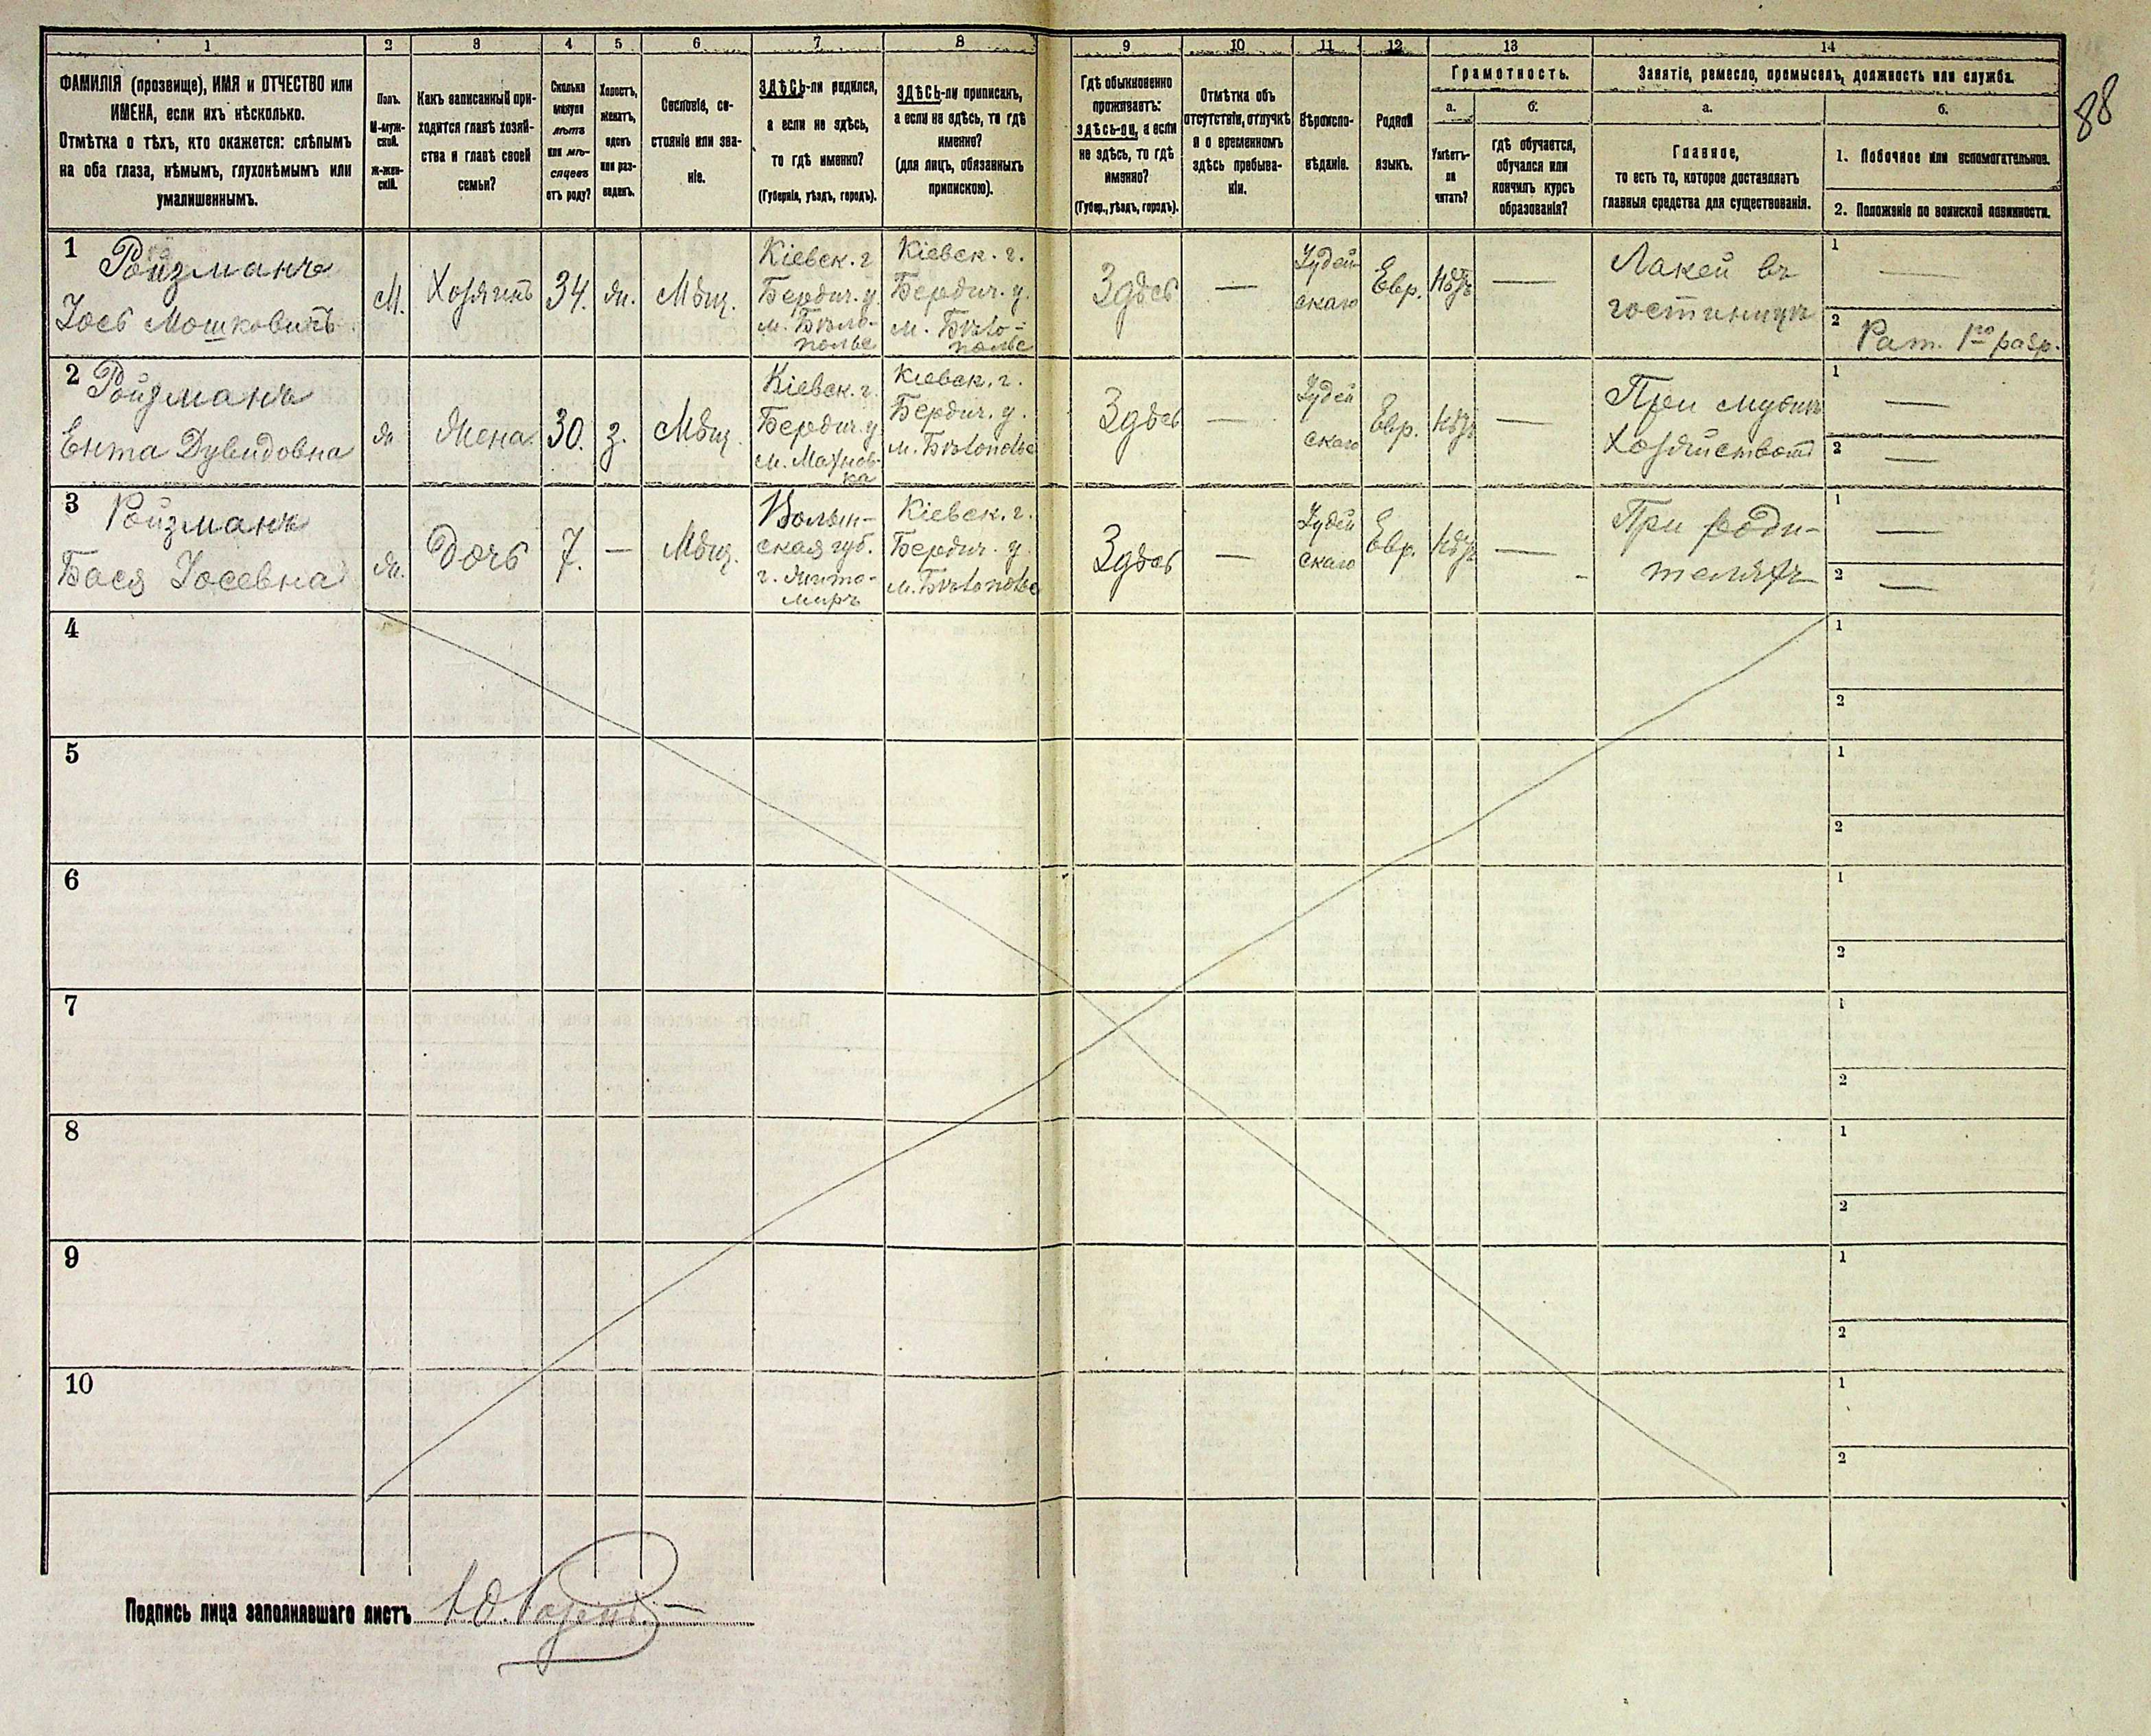 1 2 3 4 5 6 7 8 9 10 11 12 13 14
88
ФАМИЛІЯ (прозвище), ИМЯ и ОТЧЕСТВО или
ИМЕНА, если ихъ нѣсколько.
Отмѣтка о тѣхъ, кто окажется: слѣпымъ
на оба глаза, нѣмымъ, глухонѣмымъ или
умалишеннымъ.
Полъ.
М-муж-
ской.
Ж-жен-
скій.
Какъ записанный при-
ходится главѣ хозяй-
ства и главѣ своей
семьи?
Сколько
минуло
лѣтъ
или мѣ-
сяцевъ
отъ роду?
Холостъ,
женатъ,
вдовъ
или раз-
веденъ.
Сословіе, со-
стояніе или зва-
ніе.
ЗДѢСЬ-ли родился,
а если не здѣсь,
то гдѣ именно?
(Губернія, уѣздъ, городъ).
ЗДѢСЬ-ли приписанъ,
а если не здѣсь, то гдѣ
именно?
(для лицъ, обязанныхъ
припискою).
Гдѣ обыкновенно
проживаетъ:
здѣсь-ли, а если
не здѣсь, то гдѣ
именно?
(Губер., уѣздъ, городъ).
Отмѣтка объ
отсутствіи, отлучкѣ
и о временномъ
здѣсь пребыва-
ніи.
Вѣроиспо-
вѣданіе.
Родной
языкъ.
Грамотность.
а.
Умѣетъ-
ли
читать?
б.
гдѣ обучается,
обучался или
кончилъ курсъ
образованія?
Занятіе, ремесло, промыселъ, должность или служба.
а.
Главное,
то есть то, которое доставляетъ
главныя средства для существованія.
б.
1. Побочное или вспомогательное.
2. Положеніе по воинской повинности.
1
Ройзманъ
Іось Мошковичъ
М.
Хозяинъ
34.
ж.
Мѣщ.
Кіевск. г.
Бердич. у.
м. Бѣло-
полье
Кіевск. г.
Бердич. у.
м. Бѣло-
полье
Здѣсь
—
Іудей
скаго
Евр.
Нѣтъ
—
Лакей въ
гостинницѣ
1 —
2 Рат. 1го разр.
2
Ройзманъ
Ента Дувидовна
ж
Жена
30.
з.
Мѣщ.
Кіевск. г.
Бердич. у
м. Махнов-
ка
Кіевск. г.
Бердич. у.
м. Бѣлополье
Здѣсь
—
Іудей
скаго
Евр.
Нѣтъ
—
При мужѣ
хозяйство
1 —
2 —
3
Ройзманъ
Бася Іосевна
ж.
Дочь
7.
—
Мѣщ.
Волын-
ская губ.
г. Жито-
миръ
Кіевск. г.
Бердич. у.
м. Бѣлополье
Здѣсь
—
Іудей
скаго
Евр.
Нѣтъ
—
При роди-
теляхъ
1 —
2 —
4
1
2
5
1
2
6
1
2
7
1
2
8
1
2
9
1
2
10
1
2
Подпись лица заполнявшаго листъ